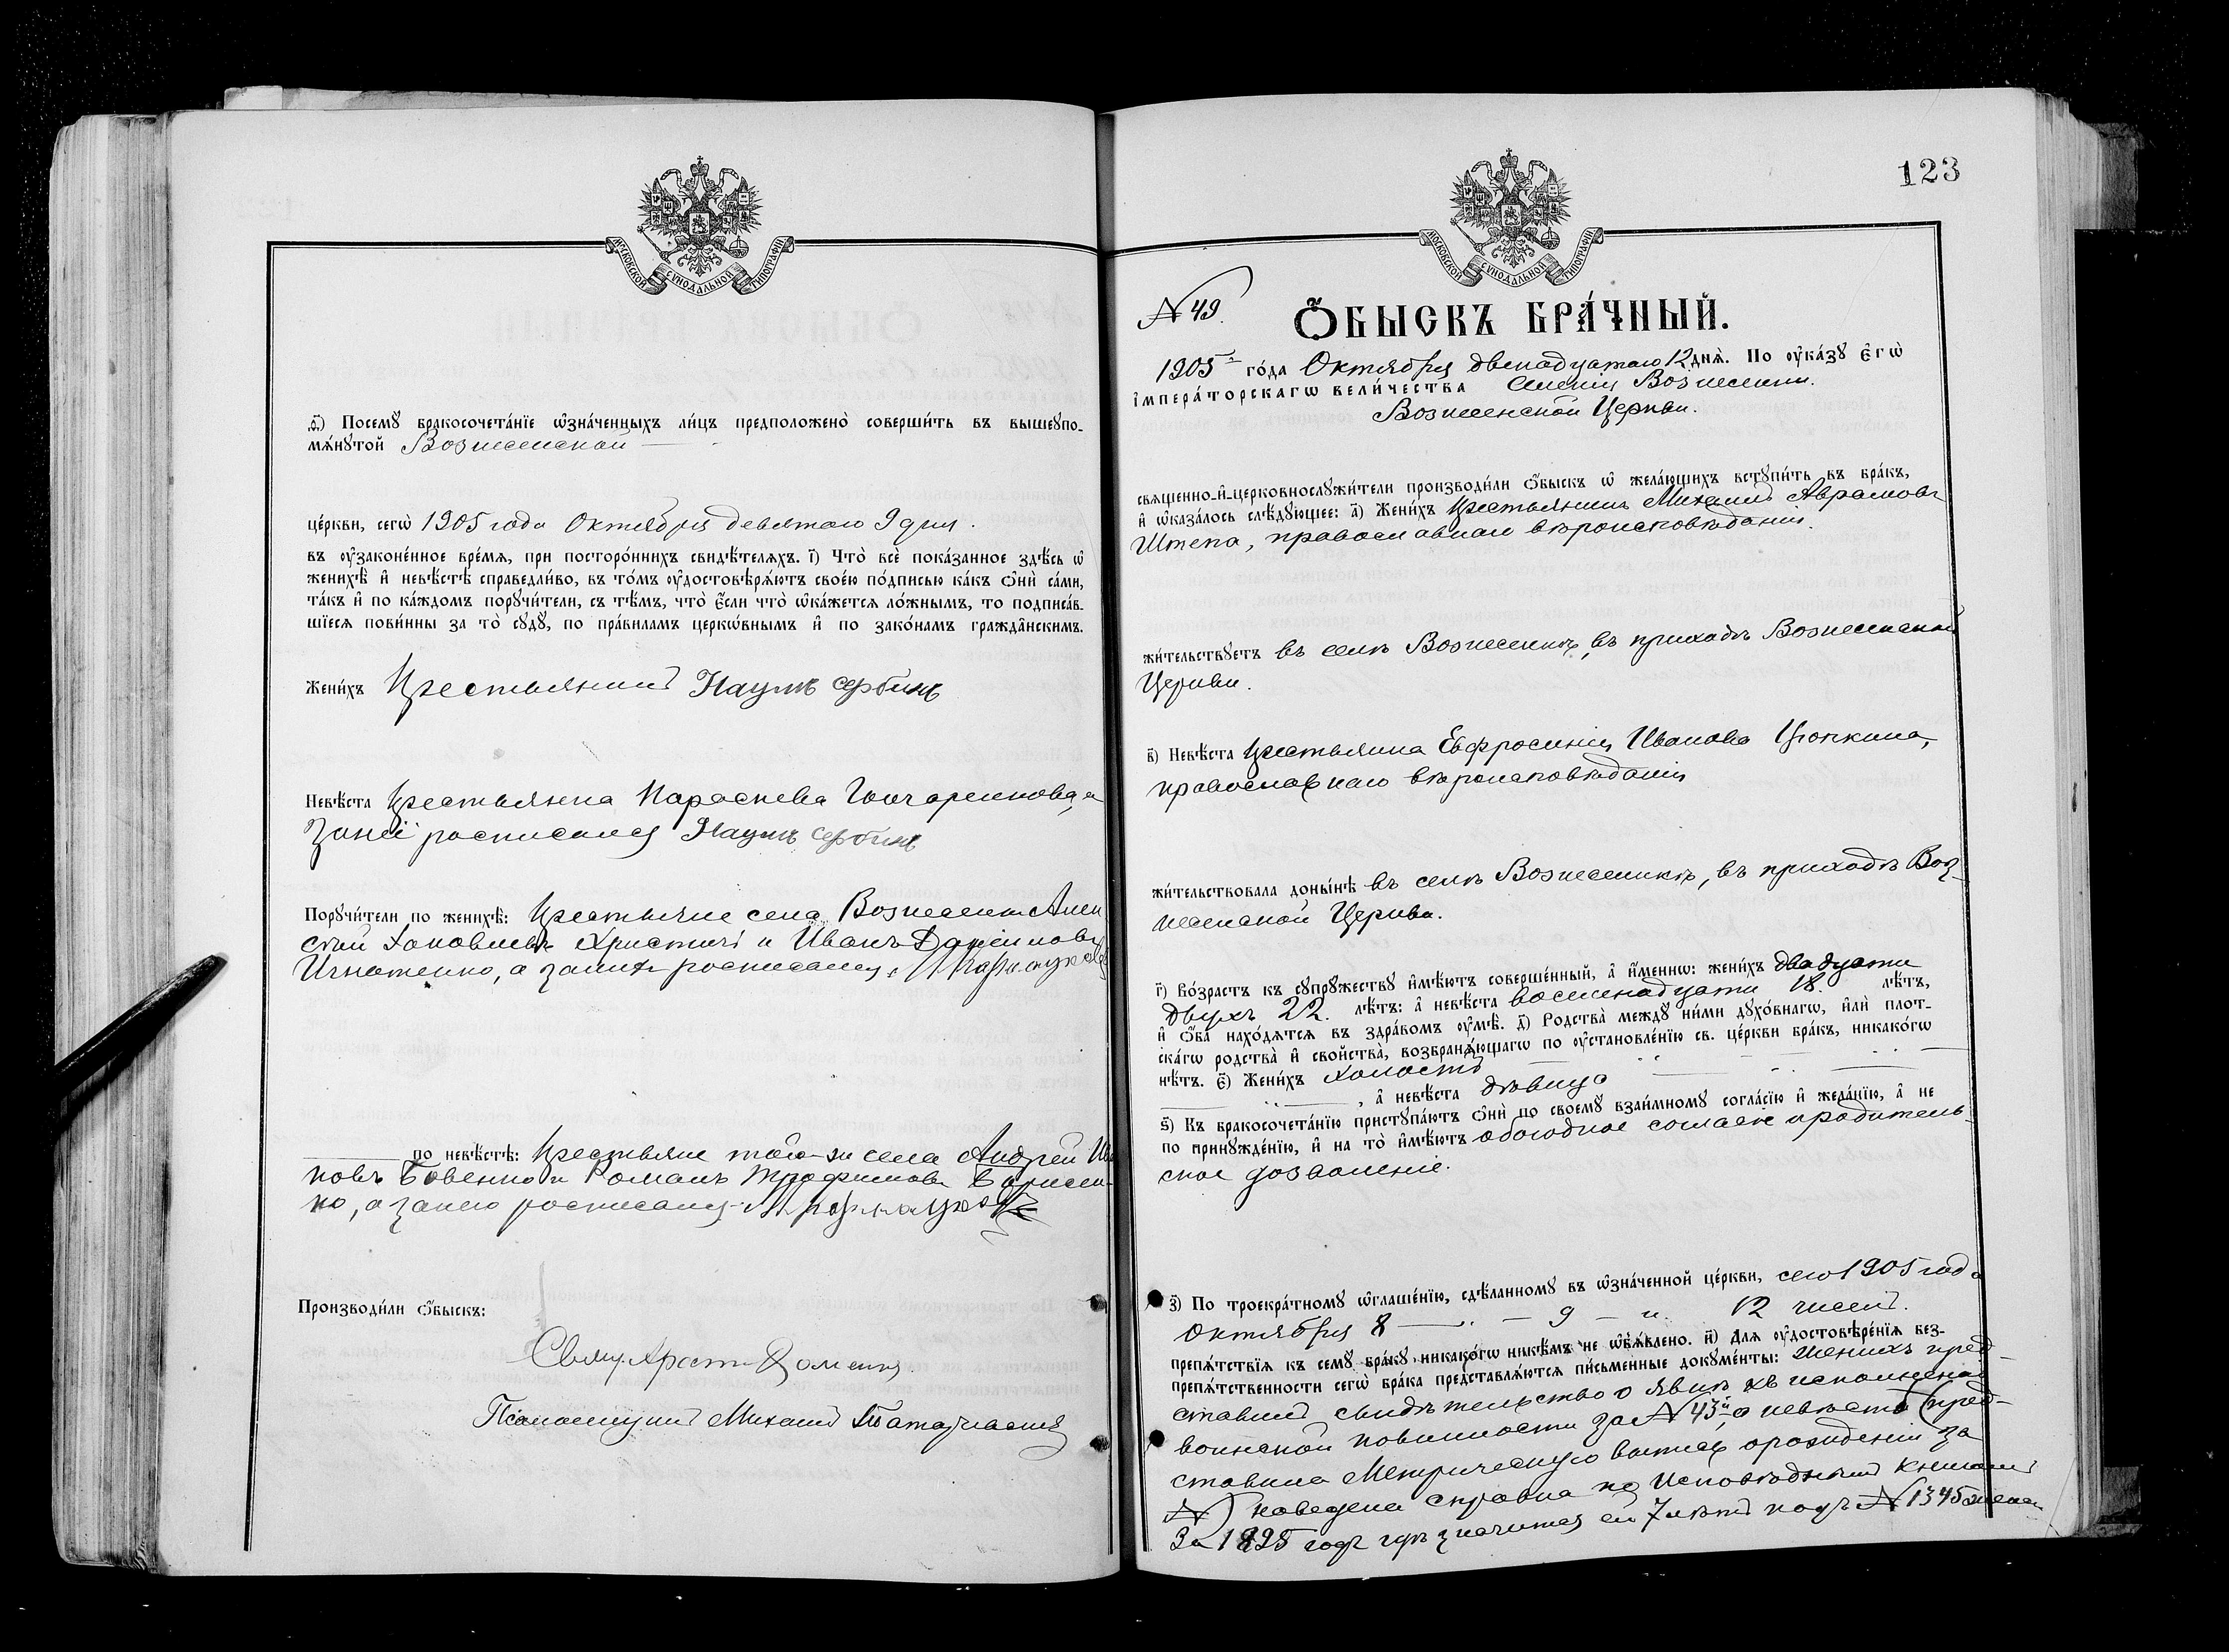 МОСКОВСКОЙ СУНОДАЛЬНОЙ ТИПОГРАФІИ
ѳ҃) Посемꙋ бракосочета́нїе ѡ҆зна́ченныхъ ли́цъ предположено̀ соверши́ть въ вышеꙋпо-
мѧ́нꙋтой Вознесенской
це́ркви, сегѡ̀ 1905 года Октября девятаго 9 дня.
въ ᲂу҆законе́нное вре́мѧ, при посторо́ннихъ свидѣ́телѧхъ. і҃) Что̀ всѐ пока́занное здѣ́сь ѡ҆
женихѣ̀ и҆ невѣ́стѣ справедли́во, въ то́мъ ᲂу҆достовѣрѧ́ютъ свое́ю по́дписью ка́къ ѻ҆нѝ са́ми,
та́къ и҆ по ка́ждомъ порꙋчи́тели, съ тѣ́мъ, что̀ є҆́сли что̀ ѡ҆ка́жетсѧ ло́жнымъ, то подписа́в-
шїесѧ пови́нны за то̀ сꙋдꙋ̀, по пра́виламъ церкѡ́внымъ и҆ по зако́намъ гражда̂нскимъ.
Жени́хъ Крестьянинъ Наумъ Сербинъ
Невѣ́ста крестьянка Параскева Гончаренкова, а
за нее росписался Наумъ Сербинъ
Порꙋчи́тели по женихѣ̀: Крестьяне села Вознесенки Алек
сѣй Яковлевъ Христичъ и Иванъ
Игнатенко, а за нихъ росписался
по невѣ́стѣ: Крестьяне того-же села Андрей Ива
новъ Бовенко и Романъ Трофимовъ Борисен-
ко, а за нею росписался
Производи́ли ѻ҆́быскъ:
Свящ.
Псаломщикъ Михаилъ
123
МОСКОВСКОЙ СУНОДАЛЬНОЙ ТИПОГРАФІИ
№ 49.
Ѻ҆́БЫСКЪ БРА́ЧНЫЙ.
1905 го́да Октября двенадцатаго 12 днѧ̀. По ᲂу҆ка́зꙋ є҆гѡ̀
і҆мпера́торскагѡ вели́чества Селенія Вознесенки.
Вознесенской Церкви.
свѧще́нно-и҆-церковнослꙋжи́тели производи́ли ѻ҆́быскъ ѡ҆ жела́ющихъ встꙋпи́ть въ бра́къ,
и҆ ѡ҆каза́лось слѣ́дꙋющее: а҃) Жени́хъ Крестьянинъ Михаилъ Аврамовъ
Штепа, православнаго вѣроисповѣданія.
жи́тельствꙋетъ въ селѣ Вознесенкѣ, въ приходѣ Вознесенской
Церкви.
в҃) Невѣ́ста крестьянка Евфросинія Иванова Цюпкина,
православнаго вѣроисповѣданія
жи́тельствовала доны́нѣ въ селѣ Вознесенкѣ, въ приходѣ Воз-
несенской Церкви.
г҃) Во́зрастъ къ сꙋпрꙋ́жествꙋ и҆мѣ́ютъ соверше́нный, а҆ и҆́меннѡ: жени́хъ двадцати
двухъ 22. лѣ́тъ: а҆ невѣ́ста восемнадцати 18. лѣ́тъ,
и҆ ѻ҆́ба нахо́дѧтсѧ въ здра́вомъ ᲂу҆мѣ̀. д҃) Родства̀ междꙋ ни́ми дꙋхо́внагѡ, и҆лѝ плот-
ска́гѡ родства̀ и҆ свойства̀, возбранѧ́ющагѡ по ᲂу҆становле́нїю св. це́ркви бра́къ, никако́гѡ
нѣ́тъ. є҃) Жени́хъ холостъ
, а҆ невѣ́ста дѣвица
ѕ҃) Къ бракосочета́нїю пристꙋпа́ютъ ѻ҆нѝ по своемꙋ̀ взаи́мномꙋ согла́сїю и҆ жела́нїю, а҆ не
по принꙋжде́нїю, и҆ на то̀ и҆мѣ́ютъ обоюдное согласіе и родитель-
ское дозволеніе.
з҃) По троекра́тномꙋ ѡ҆глаше́нїю, сдѣ́ланномꙋ въ ѡ҆зна́ченной це́ркви, сего 1905 года
Октября 8 — 9 — и 12 чиселъ.
препѧ́тствїѧ къ семꙋ̀ бра́кꙋ никако́гѡ никѣ́мъ не ѡ҆б̾ѧ́влено. и҃) Длѧ ᲂу҆достовѣре́нїѧ без-
препѧ́тственности сегѡ̀ бра́ка представлѧ́ютсѧ пи́сьменные докꙋме́нты: женихъ пред-
ставилъ свидѣтельство о явкѣ къ исполненію
воинской повинности за № 43й, а невѣста (пред-
ставила Метрическую выпись о рожденіи за
№) наведена справка по Исповѣднымъ книгамъ
За 1895 годъ гдѣ значится ей 7 лѣтъ подъ № 1345